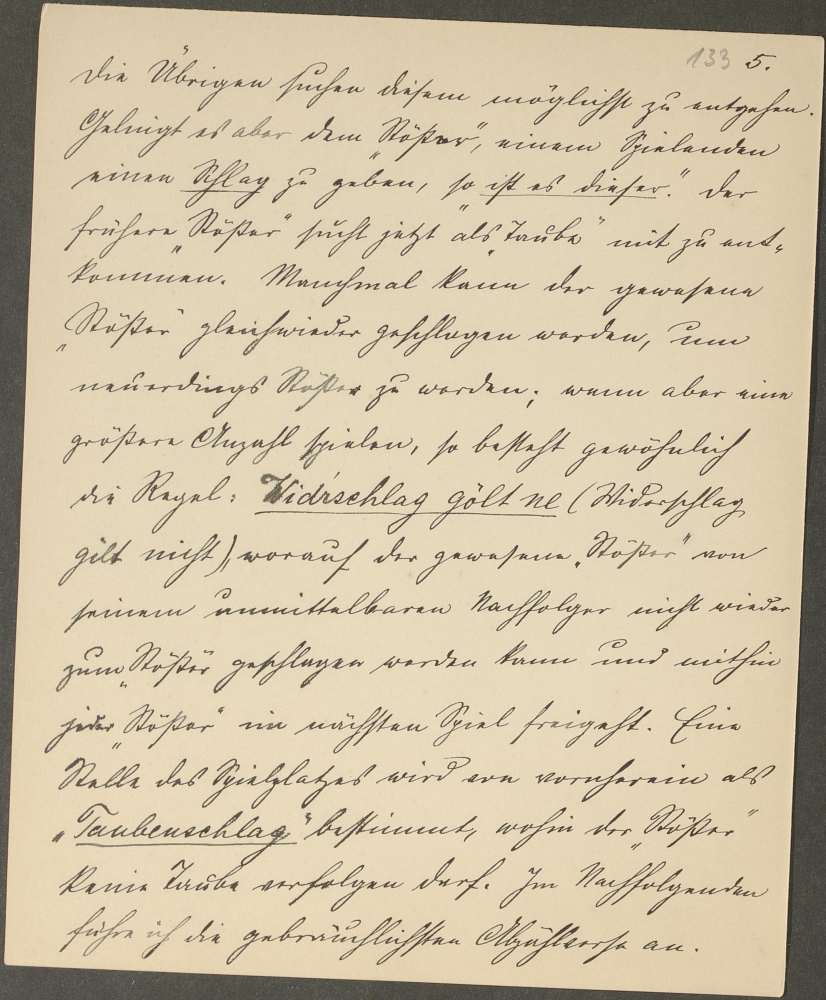 133 5.
Die Übrigen suchen diesem möglichst zu entgehen.
Gelingt es aber dem „Stößer“, einem Spielenden
einen Schlag zu geben, „so ist es dieser.“ Der
frühere „Stößer“ sucht jetzt „als Taube“ mit zu ent-
kommen. Manchmal kann der gewesene
„Stößer“ gleich wieder geschlagen werden, um
neuerdings Stößer zu werden; wenn aber eine
größere Anzahl spielen, so besteht gewöhnlich
die Regel: Widrschlag gölt ne (Widerschlag
gilt nicht), worauf der gewesene „Stößer“ von
seinem unmittelbaren Nachfolger nicht wieder
zum „Stößer“ geschlagen werden kann und mithin
jeder „Stößer“ im nächsten Spiel freigeht. Eine
Stelle des Spielplatzes wird von vornherein als
„Taubenschlag“ bestimmt, wohin der „Stößer“
keine Taube verfolgen darf. Im Nachfolgenden
führe ich die gebräuchlichsten Abzählverse an.